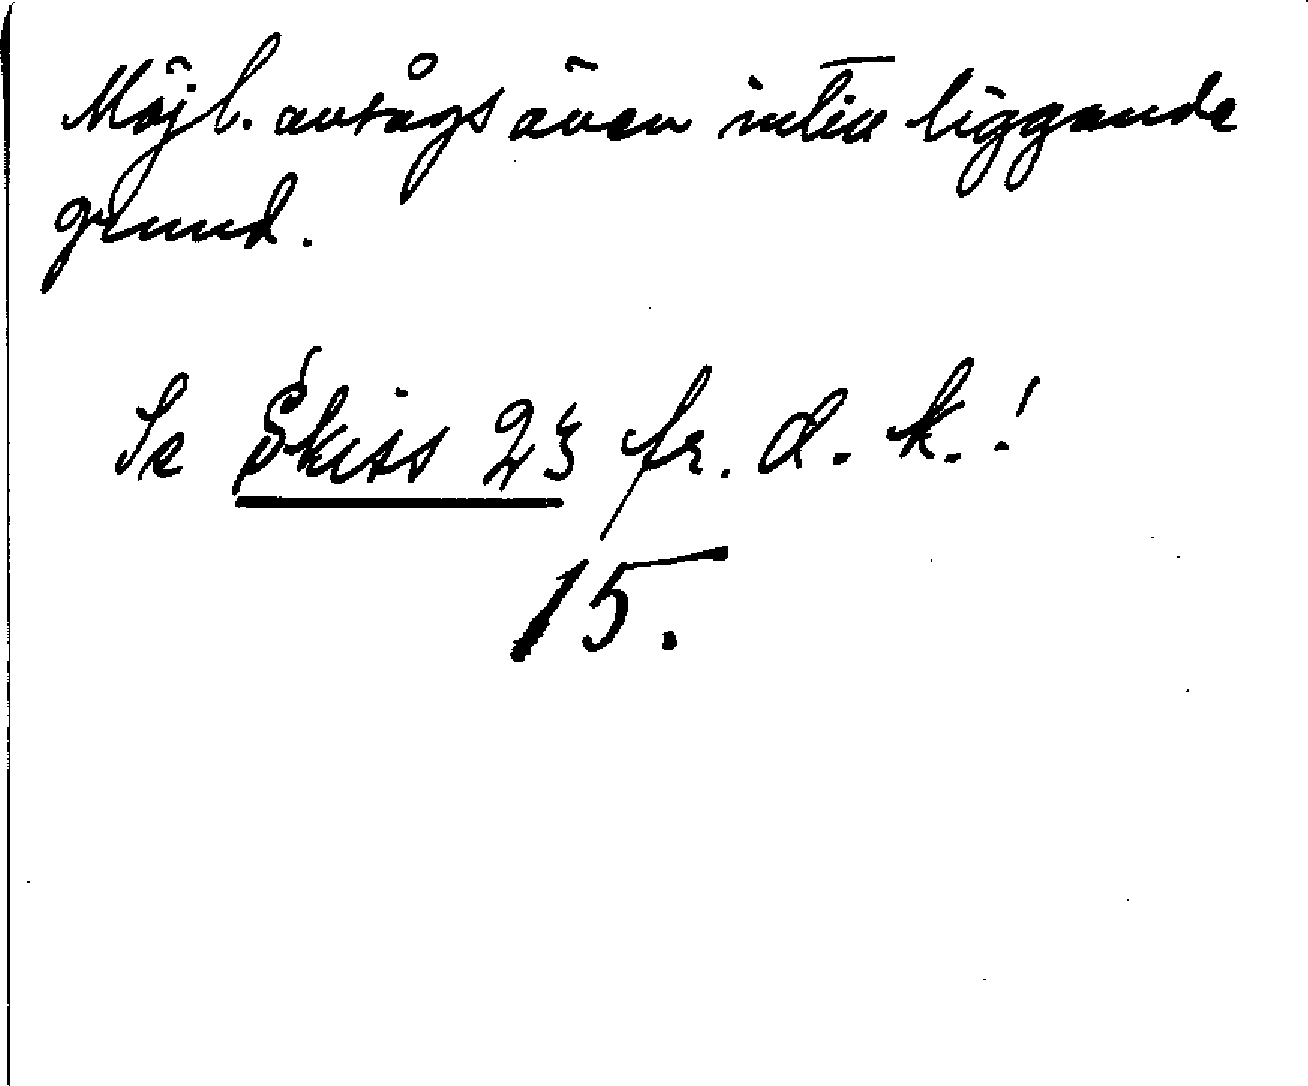 Möjl. avsågs även intill liggande
grund.
Se Skiss 23 fr. d. k.!
15.